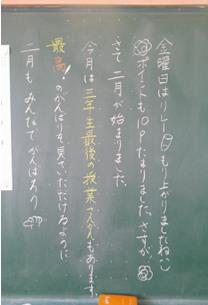 金曜日はリレーもり上がりましたね
ポイントも10Pたまりました。さすが。
さて 二月が始まりました。
今月は三年生最後の授業さんかんもあります。
最高のがんばりを見ていただけるように
二月も みんなで がんばろう